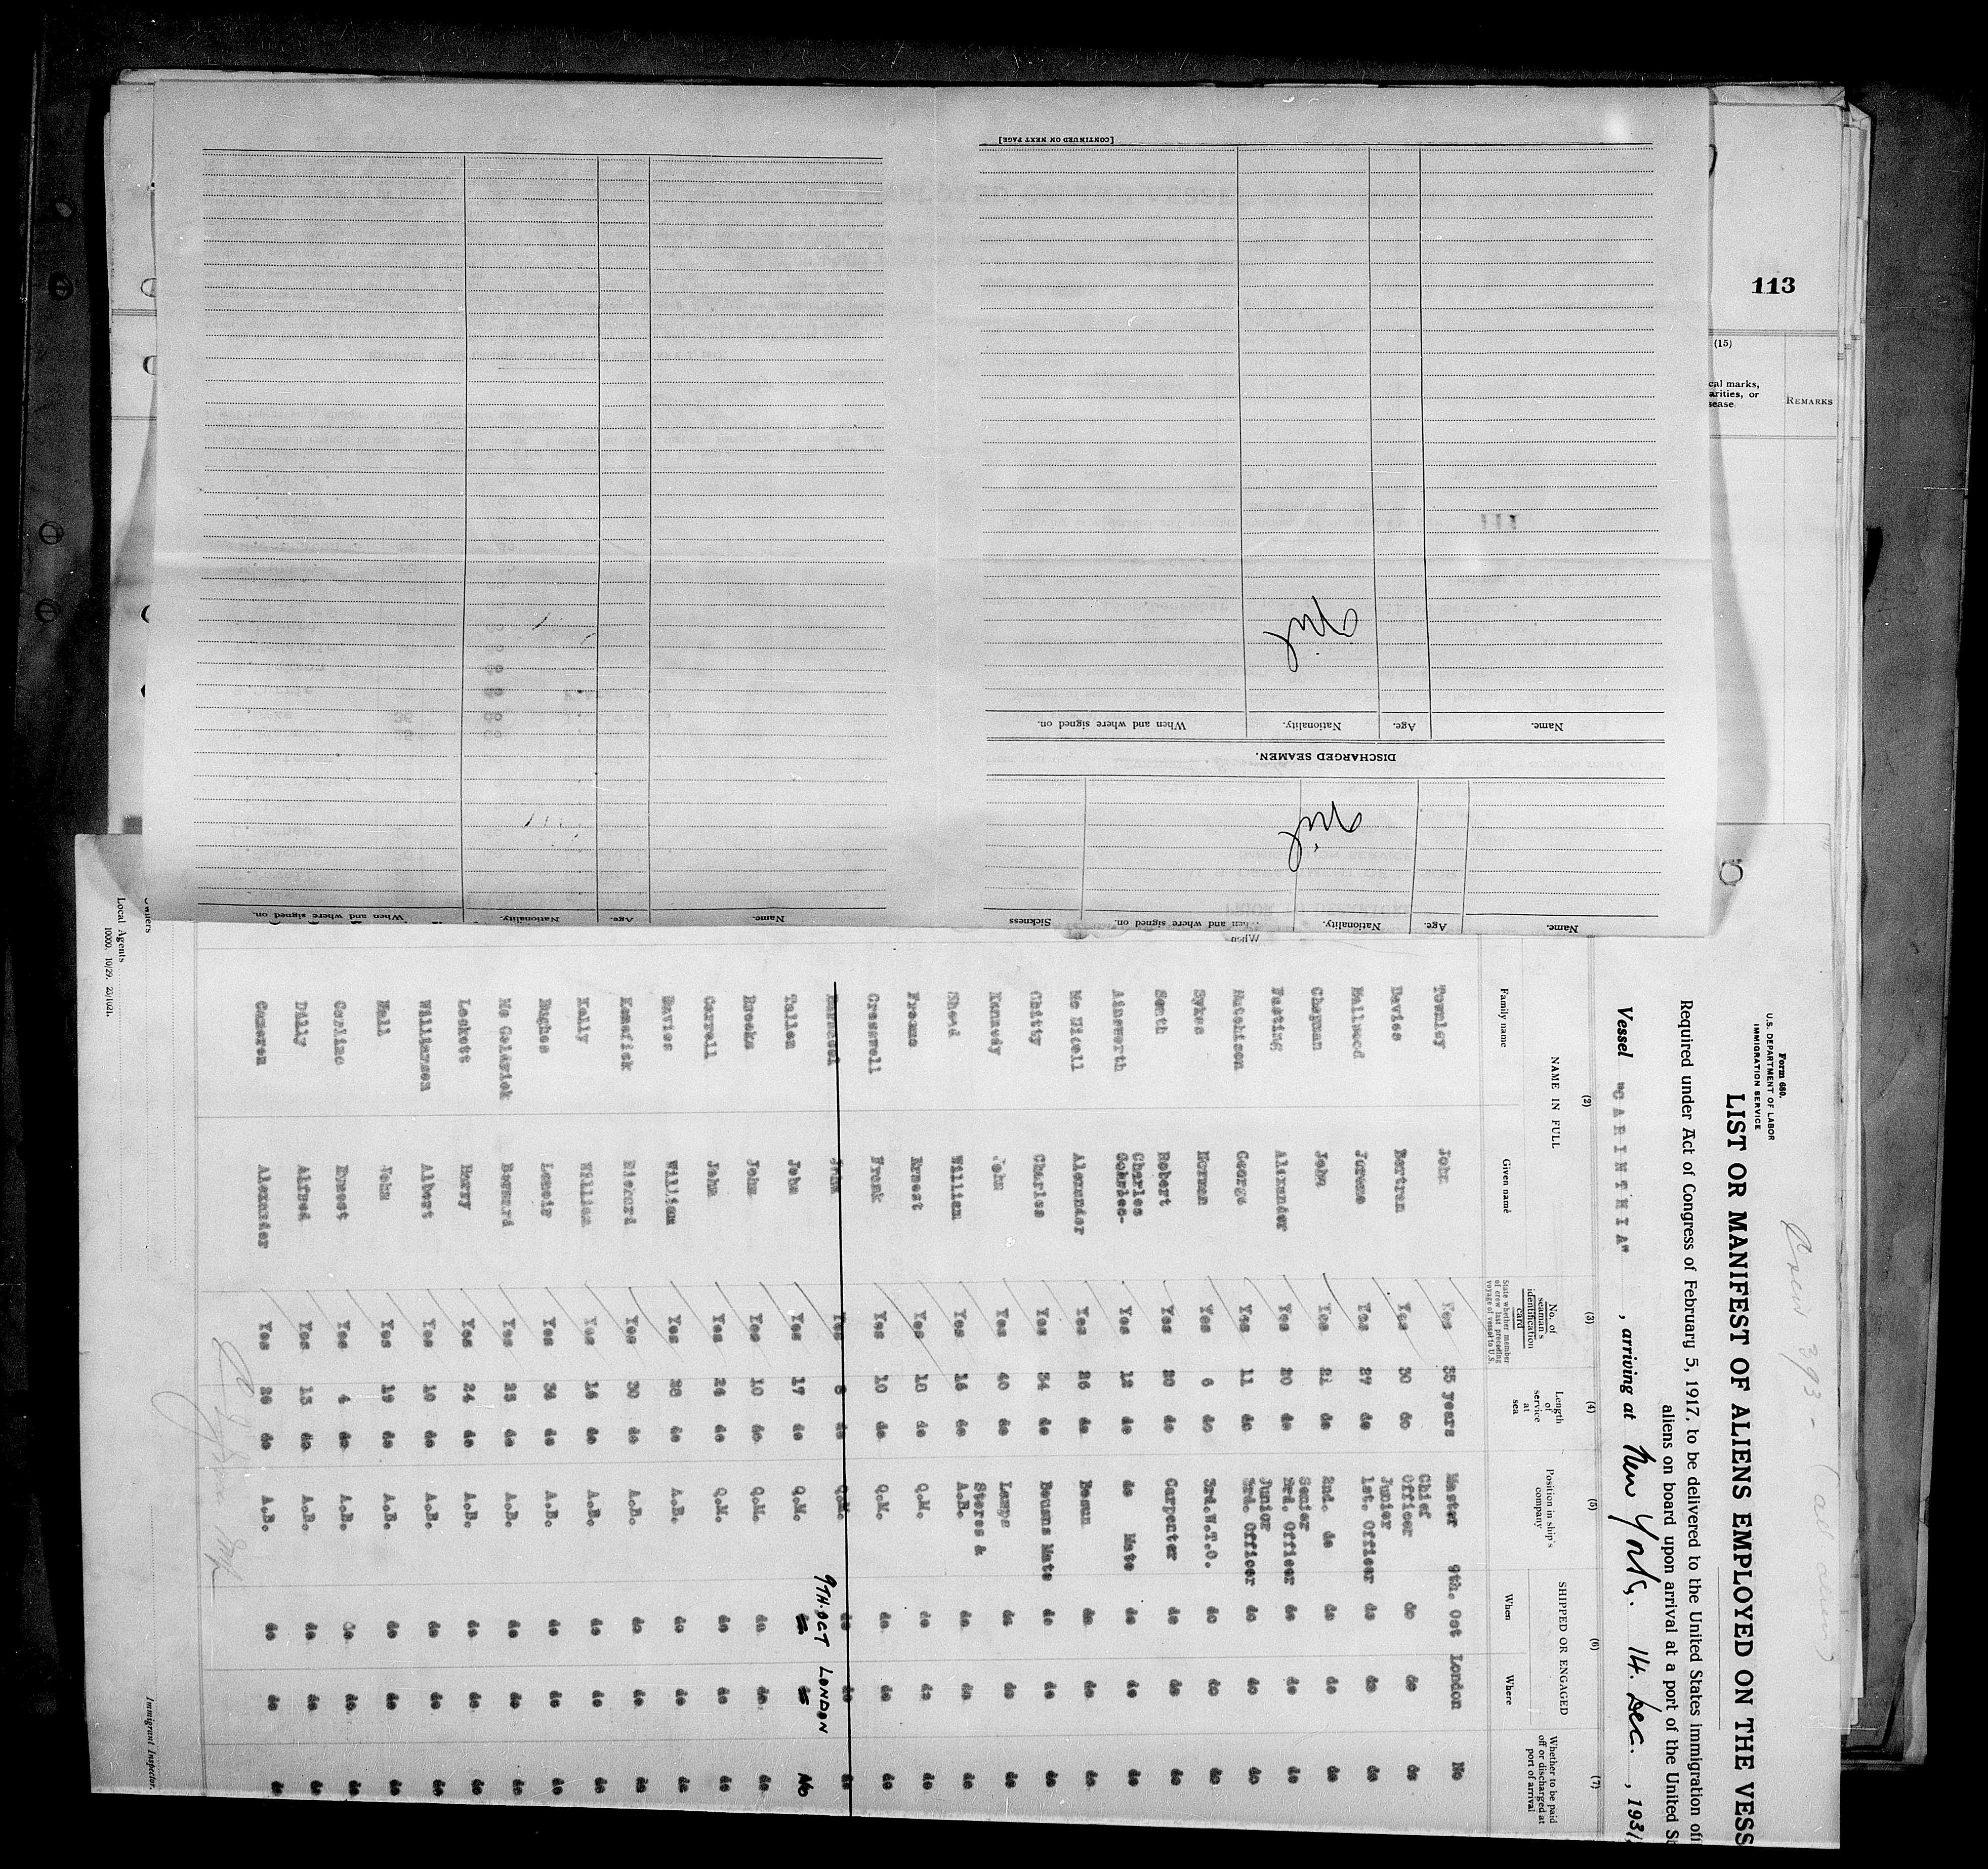 113
(15)
cal marks,
arities, or
sease.
REMARKS
[CONTINUED ON NEXT PAGE]
Nil
Name.
Age.
Nationality.
When and where signed on.
DISCHARGED SEAMEN.
Nil
Name.
Age.
Nationality.
When and where signed on.
Sickness
When
Name.
Age.
Nationality.
When and where signed on.
Crew 393 - (all aliens)
Form 680.
U.S. DEPARTMENT OF LABOR
IMMIGRATION SERVICE
LIST OR MANIFEST OF ALIENS EMPLOYED ON THE VESS
Required under Act of Congress of February 5, 1917, to be delivered to the United States immigration off
aliens on board upon arrival at a port of the United St
Vessel "CARINTHIA", arriving at New York, 14. Dec., 1931,
(2) (3) (4) (5) (6) (7)
NAME IN FULL
Family name Given name
No. of seaman's identification card
State whether member of crew last preceding voyage of vessel to U.S.
Length of service at sea
Position in ship's company
SHIPPED OR ENGAGED
When Where
Whether to be paid off or discharged at port of arrival
Townley John Yes 35 years Master 9th. Oct London No
Davies Bertram Yes 30 do Chief Officer do do do
Hailwood Jerome Yes 27 do Junior 1st. Officer do do do
Chapman John Yes 21 do 2nd. do do do do
Fasting Alexander Yes 20 do Senior 3rd. Officer do do do
Hutchison George Yes 11 do Junior 3rd. Officer do do do
Sykes Norman Yes 6 do 3rd.W.T.O. do do do
South Robert Yes 20 do Carpenter do do do
Ainsworth Charles Yes 12 do do Mate do do do
Mc Nicoll Alexander Yes 26 do Bosun do do do
Chitty Charles Yes 34 do Bosuns Mate do do do
Kennedy John Yes 40 do Lamps do do do
Shead William Yes 16 do Stores & A.B. do do do
Froome Ernest Yes 18 do Q.M. do do do
Cresswell Frank Yes 10 do Q.M. do do do
John Yes 8 do Q.M. do do do
Tallon John Yes 17 do Q.M. 9TH.OCT LONDON No
Brooks John Yes 10 do Q.M. do do do
Carroll John Yes 24 do Q.M. do do do
Davies William Yes 28 do A.B. do do do
Kenefick Richard Yes 30 do A.B. do do do
Kelly William Yes 16 do A.B. do do do
Hughes Yes 34 do A.B. do do do
Mc Geldrick Bernard Yes 25 do A.B. do do do
Lockett Harry Yes 24 do A.B. do do do
Williamson Albert Yes 10 do A.B. do do do
Hall John Yes 19 do A.B. do do do
Ernest Yes 4 do A.B. do do do
Dilly Alfred Yes 13 do A.B. do do do
Cameron Alexander Yes 20 do A.B. do do do
Owners
Local Agents
10000. 10/29. 23/1021.
Immigrant Inspector.